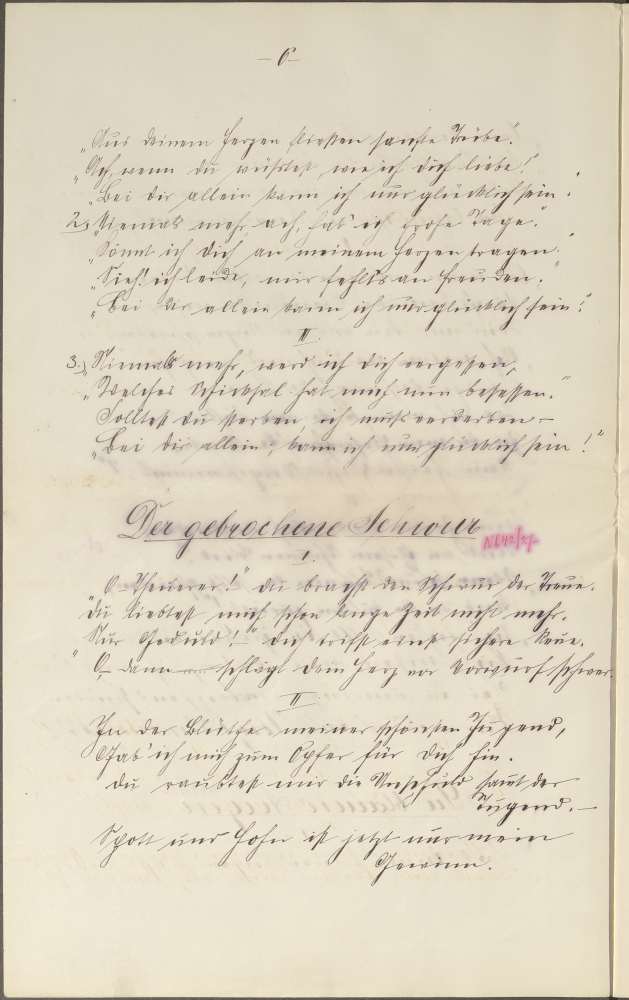 – 6 –
„Aus deinem Herzen fließen sanfte Triebe."
„Ach, wenn du wüßtest, wie ich dich liebe!"
„Bei dir allein kann ich nur glücklich sein."
2., Niemals mehr, ach, hab' ich frohe Tage."
„Könnt ich dich an meinem Herzen tragen."
„Sieh! ich leide, mir fehlt's an Freuden."
„Bei dir allein kann ich nur glücklich sein!"
III
3.) Niemals mehr, werd ich dich vergessen,
„Welches Schicksal hat mich nun besessen."
Solltest du sterben, ich muß verderben –
„Bei dir allein, kann ich nur glücklich sein!"
Der gebrochene Schwur
I.
„O Theuerer!" du brachst den Schwur der Treue.
Du liebtest mich schon lange Zeit nicht mehr.
„Nur Geduld!" dich trifft einst sichere Reue.
O dann schlägt dein Herz vor Vorwurf schwer.
II.
In der Blüthe meiner schönsten Jugend,
Gab' ich mich zum Opfer für dich hin.
Du raubtest mir die Unschuld samt der
Tugend. –
Spott und Hohn ist jetzt nur mein
Gewinn.